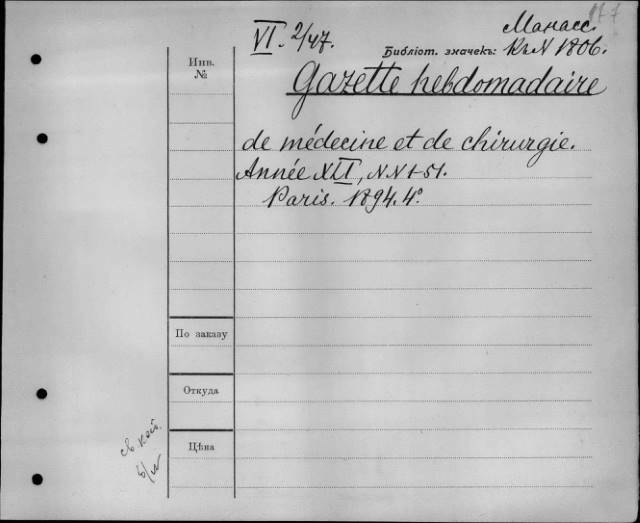 VI. 2/47.
Манасс.
Библіот. значекъ: КъN 1806.
Инв.
№
Gazette hebdomadaire
de médecine et de chirurgie.
Année XLI, NN 1-51.
Paris. 1894. 4º.
По заказу
Откуда
Цѣна